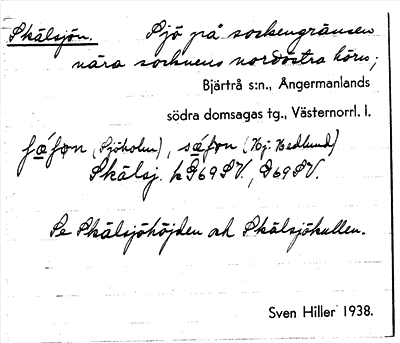 Skälsjön. Sjö på sockengränsen
nära socknens nordöstra hörn;
Bjärtrå s:n., Ångermanlands
södra domsagas tg., Västernorrl. l.
(Sjöholm), (Hj. Hedlund)
Skälsj. k G69SV., G69SV.
Se Skälsjöhöjden och Skälsjökullen.
Sven Hiller 1938.